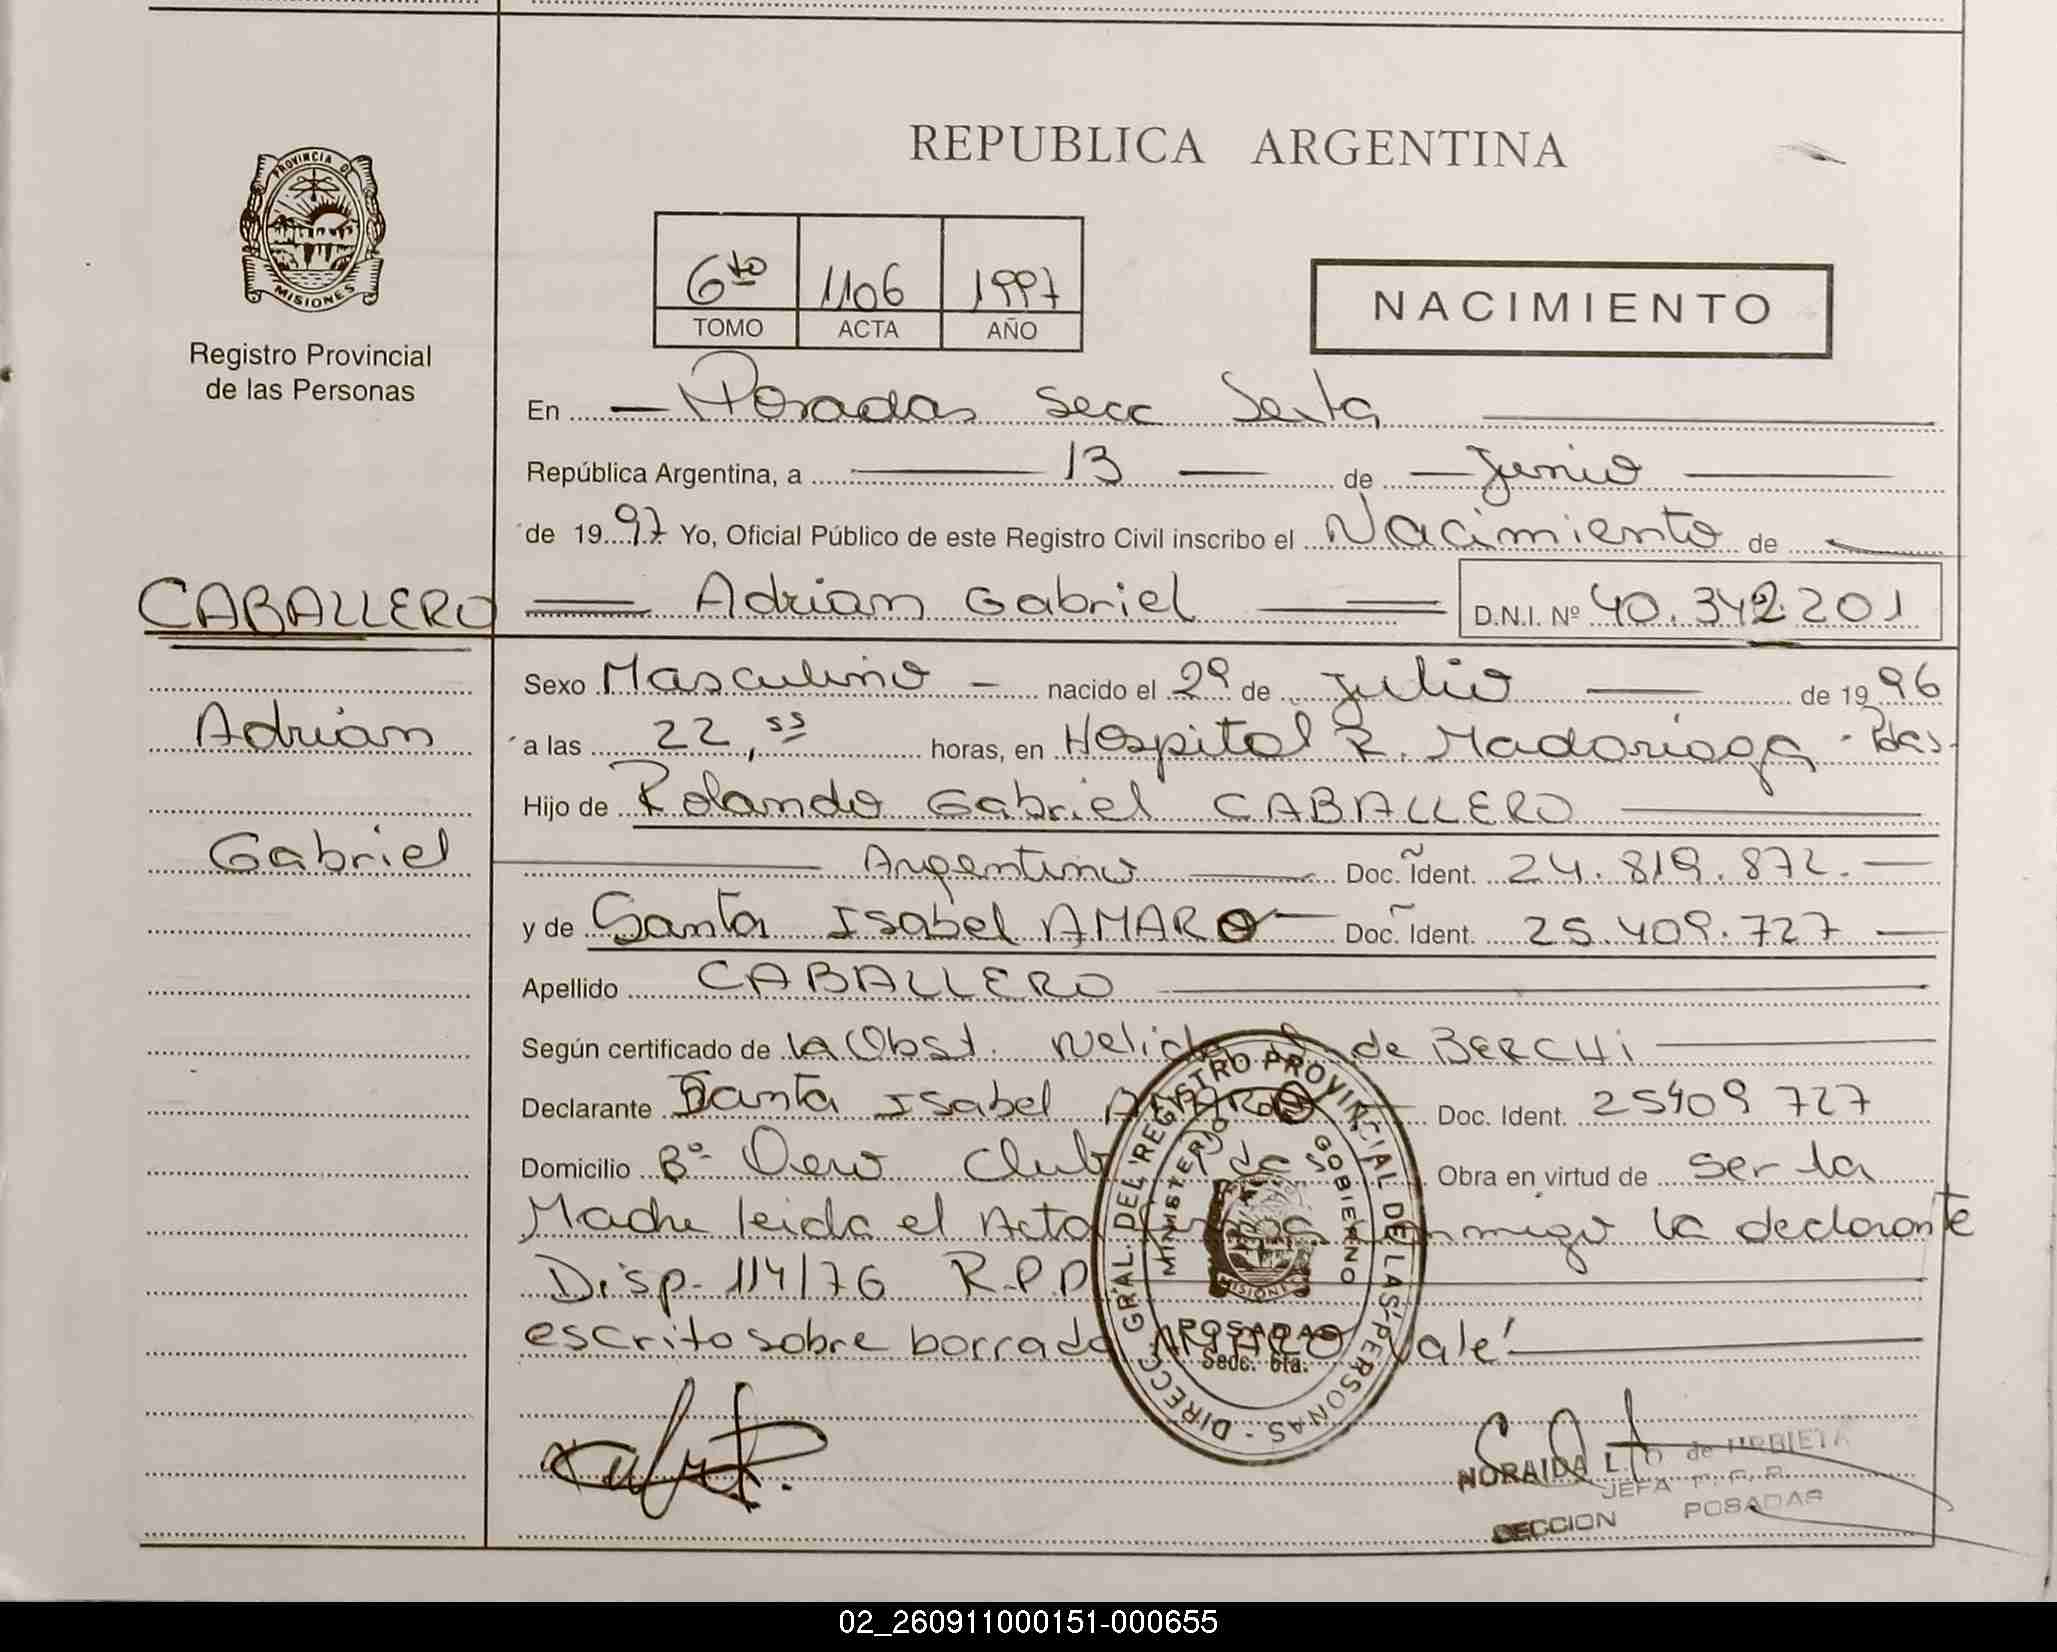 REPUBLICA ARGENTINA
PROVINCIA DE
MISIONES
Registro Provincial
de las Personas
6to 1106 1997
TOMO ACTA AÑO
NACIMIENTO
En Posadas Secc Sexta
República Argentina, a 13 de Junio
de 1997 Yo, Oficial Público de este Registro Civil inscribo el Nacimiento de
CABALLERO Adrian Gabriel D.N.I. Nº 40.342.201
Sexo Masculino nacido el 29 de Julio de 1996
Adrian
a las 22,55 horas, en Hospital R. Madariaga - Pdas-
Hijo de Rolando Gabriel CABALLERO
Gabriel
Argentino Doc. Ident. 24.819.872.
y de Santa Isabel AMARO Doc. Ident. 25.409.727
Apellido CABALLERO
Según certificado de la Obst. Nelida de BERCHI
Declarante Santa Isabel AMARO Doc. Ident. 25409727
Domicilio Bº Club Pdas Obra en virtud de ser la
Madre leida el Acta firma conmigo la declarante
Disp. 114/76 R.P.P
escrito sobre borrado AMARO Vale!
DIRECC. GRAL. DEL REGISTRO PROVINCIAL DE LAS PERSONAS
MINISTERIO GOBIERNO
MISIONES
POSADAS
Secc. 6ta.
NORAIDA L. de URBIETA
JEFA
SECCION POSADAS
02_260911000151-000655